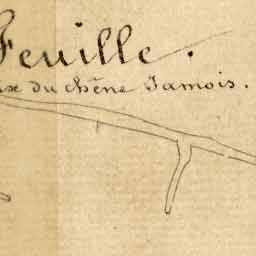 Feuille.
du chêne Jamois.